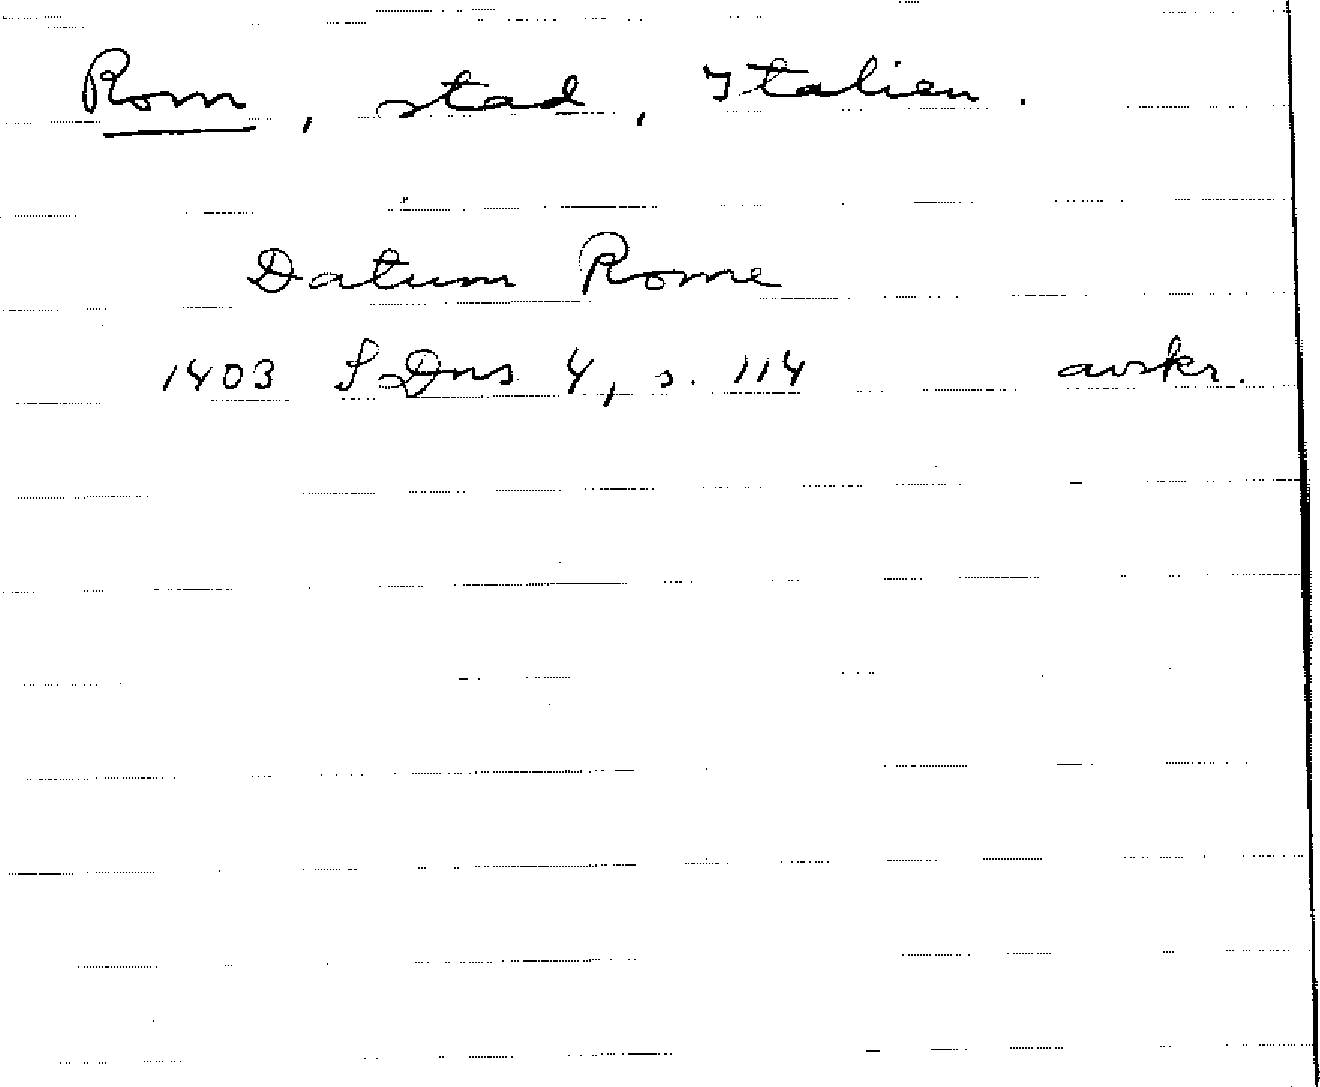 Rom, stad, Italien.
Datum Rome
1403 SDns 4, s. 114 avskr.